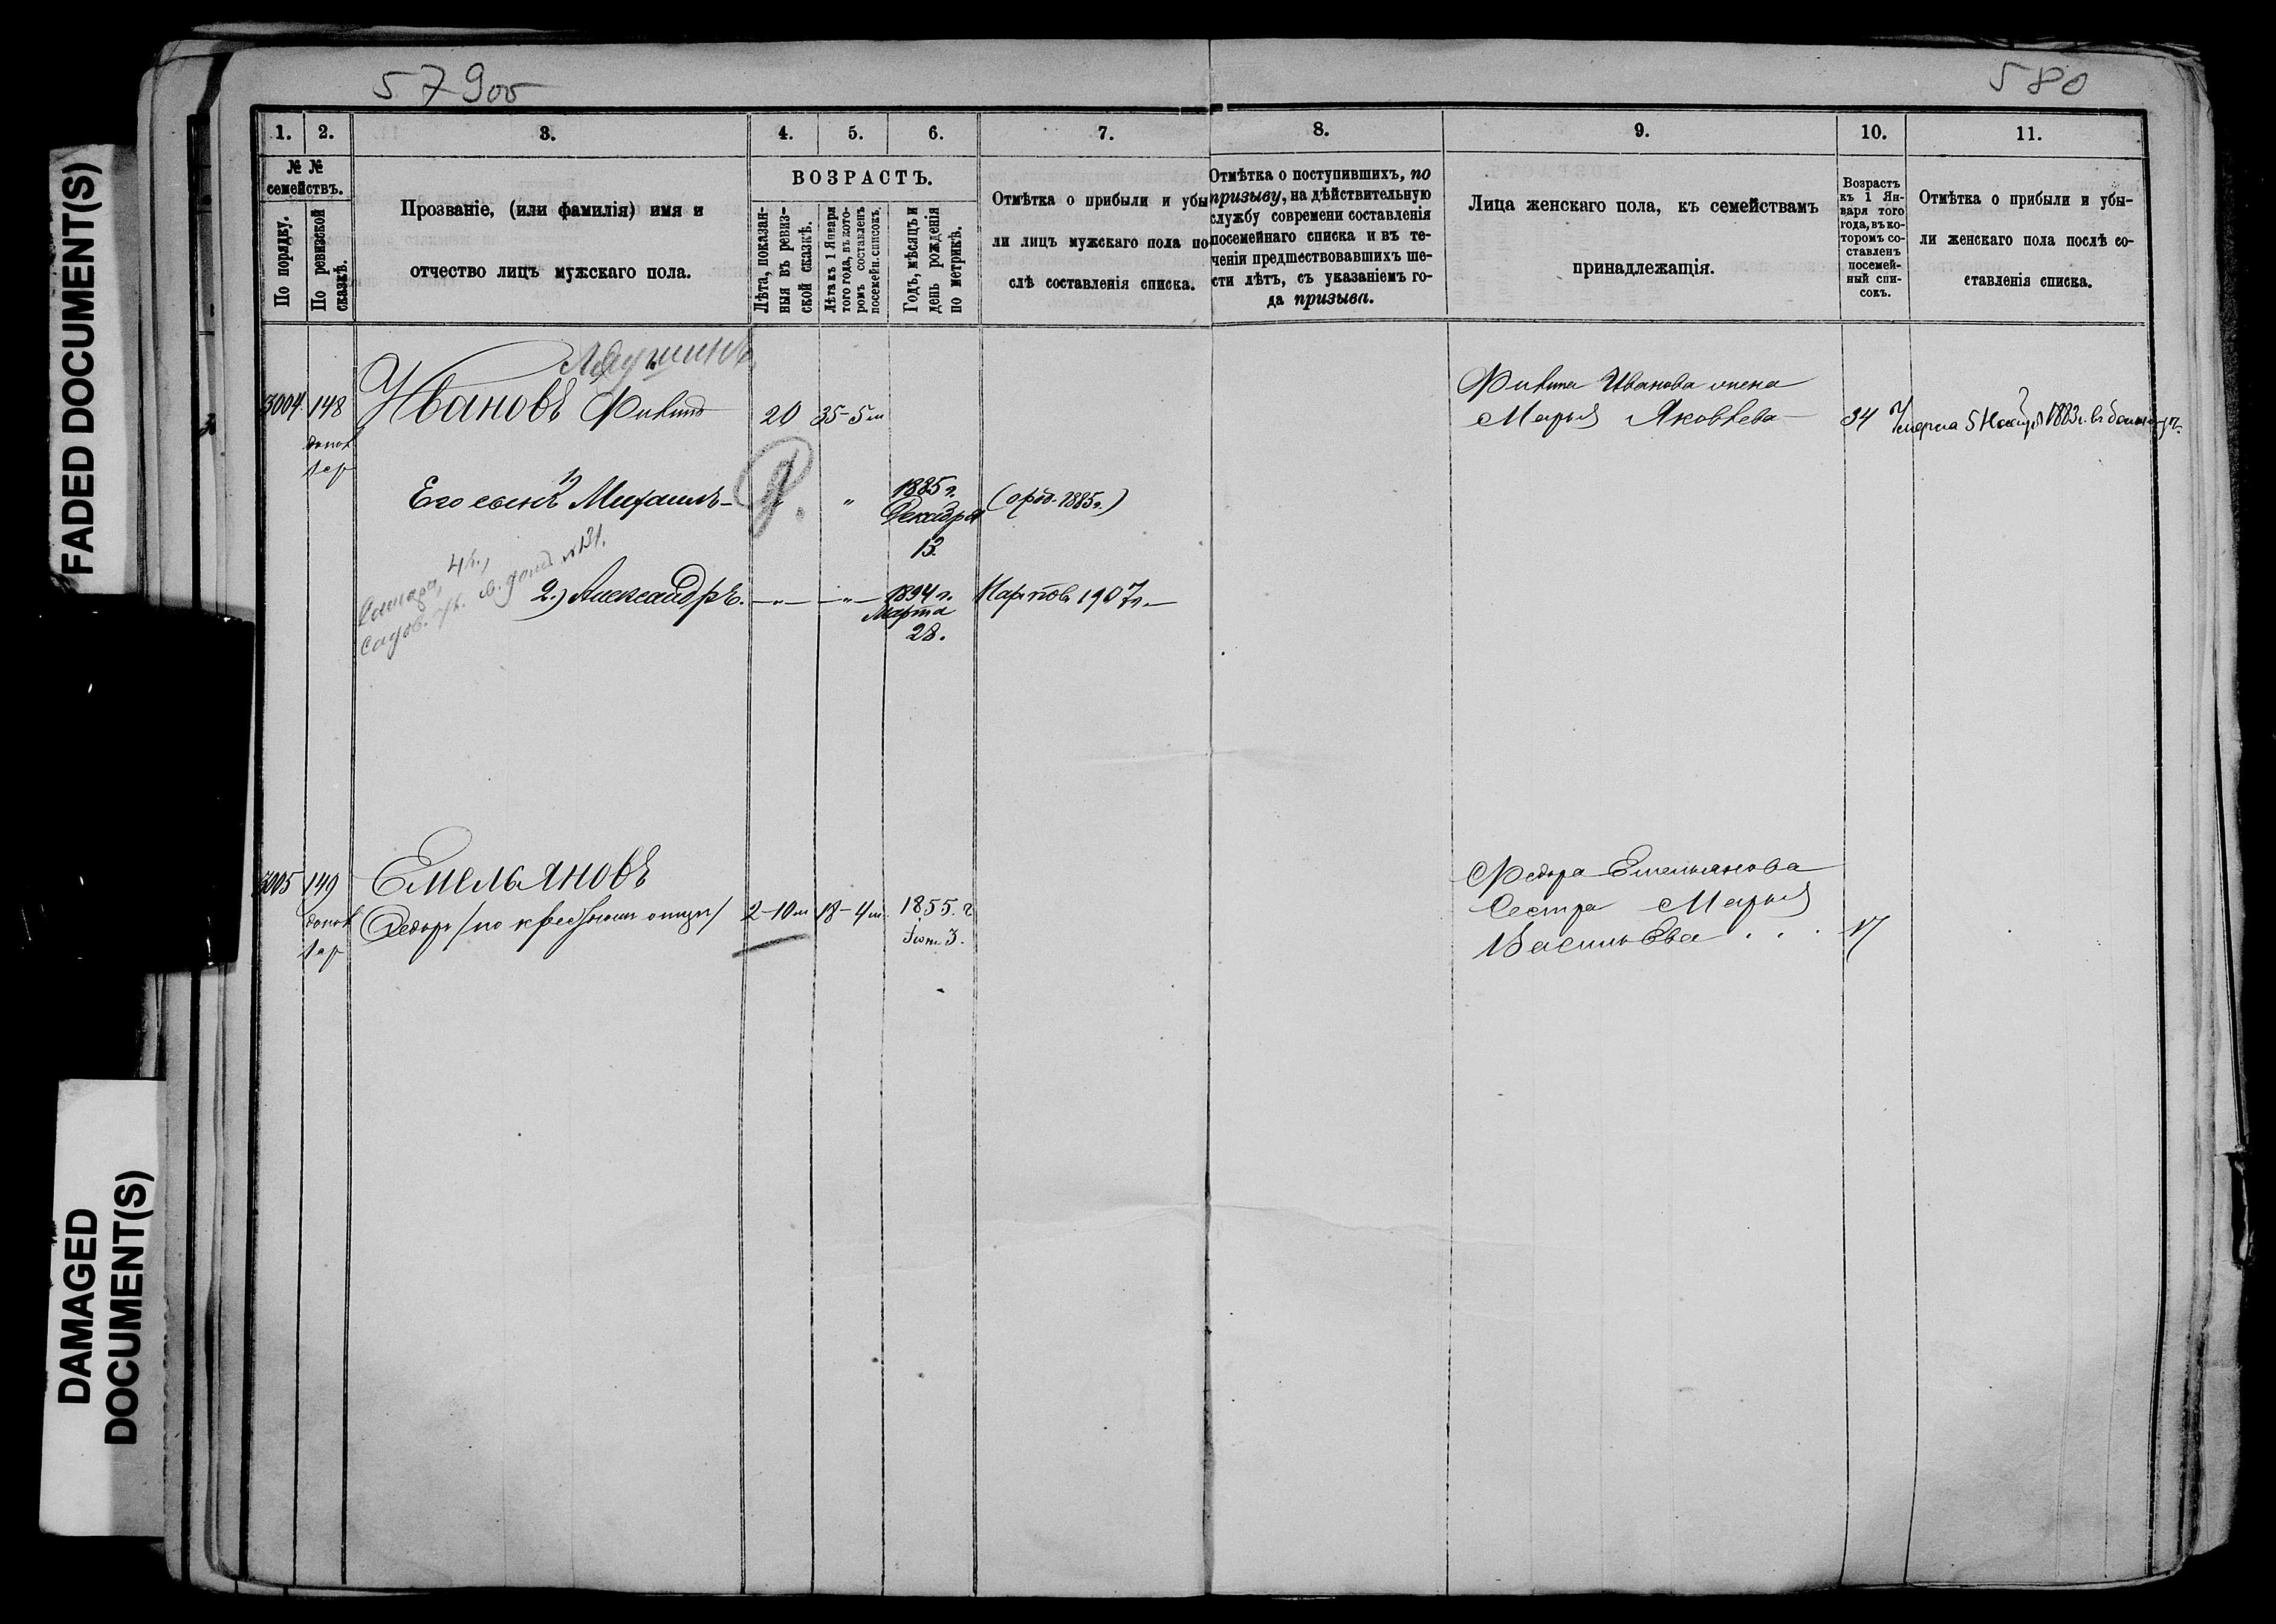 57900
580
1.
2.
3.
4.
5.
6.
7.
8.
9.
10.
11.
№ №
семействъ.
По порядку.
По ревизской
сказкѣ.
Прозваніе, (или фамилія) имя и
отчество лицъ мужскаго пола.
ВОЗРАСТЪ.
Лѣта, показан-
ныя въ ревиз-
ской сказкѣ.
Лѣта къ 1 Января
того года, въ кото-
ромъ составленъ
посемейн. списокъ.
Годъ, мѣсяцъ и
день рожденія
по метрикѣ.
Отмѣтка о прибыли и убы
ли лицъ мужскаго пола по
слѣ составленія списка.
Отмѣтка о поступившихъ, по
призыву, на дѣйствительную
службу современи составленія
посемейнаго списка и въ те-
ченіи предшествовавшихъ ше-
сти лѣтъ, съ указаніемъ го-
да призыва.
Лица женскаго пола, къ семействамъ
принадлежащія.
Возрастъ
къ 1 Ян-
варя того
года, въ ко-
торомъ со-
ставленъ
посемей-
ный спи-
сокъ.
Отмѣтка о прибыли и убы-
ли женскаго пола послѣ со-
ставленія списка.
3004 148
Ивановъ
20 35-5 м
Ивanова жена
Марья Яковлева
34 Умерла 5 1883 г.
допол
1 ер
Его сынъ Михаилъ
1885 г.
Декабря
13
(о род. 1885 г.)
Самара, 4 ч.,
Садов. ул. с. домъ № 131.
2.) Александръ.
1894 г.
Марта
28.
1907 г.
3005 149
Емельяновъ
допол
1 ер
Федоръ /по крестному отцу/
2-10 м 18-4 м
1855. г
3.
Федора Емельянова
Сестра Марья
Васильева . . . 17